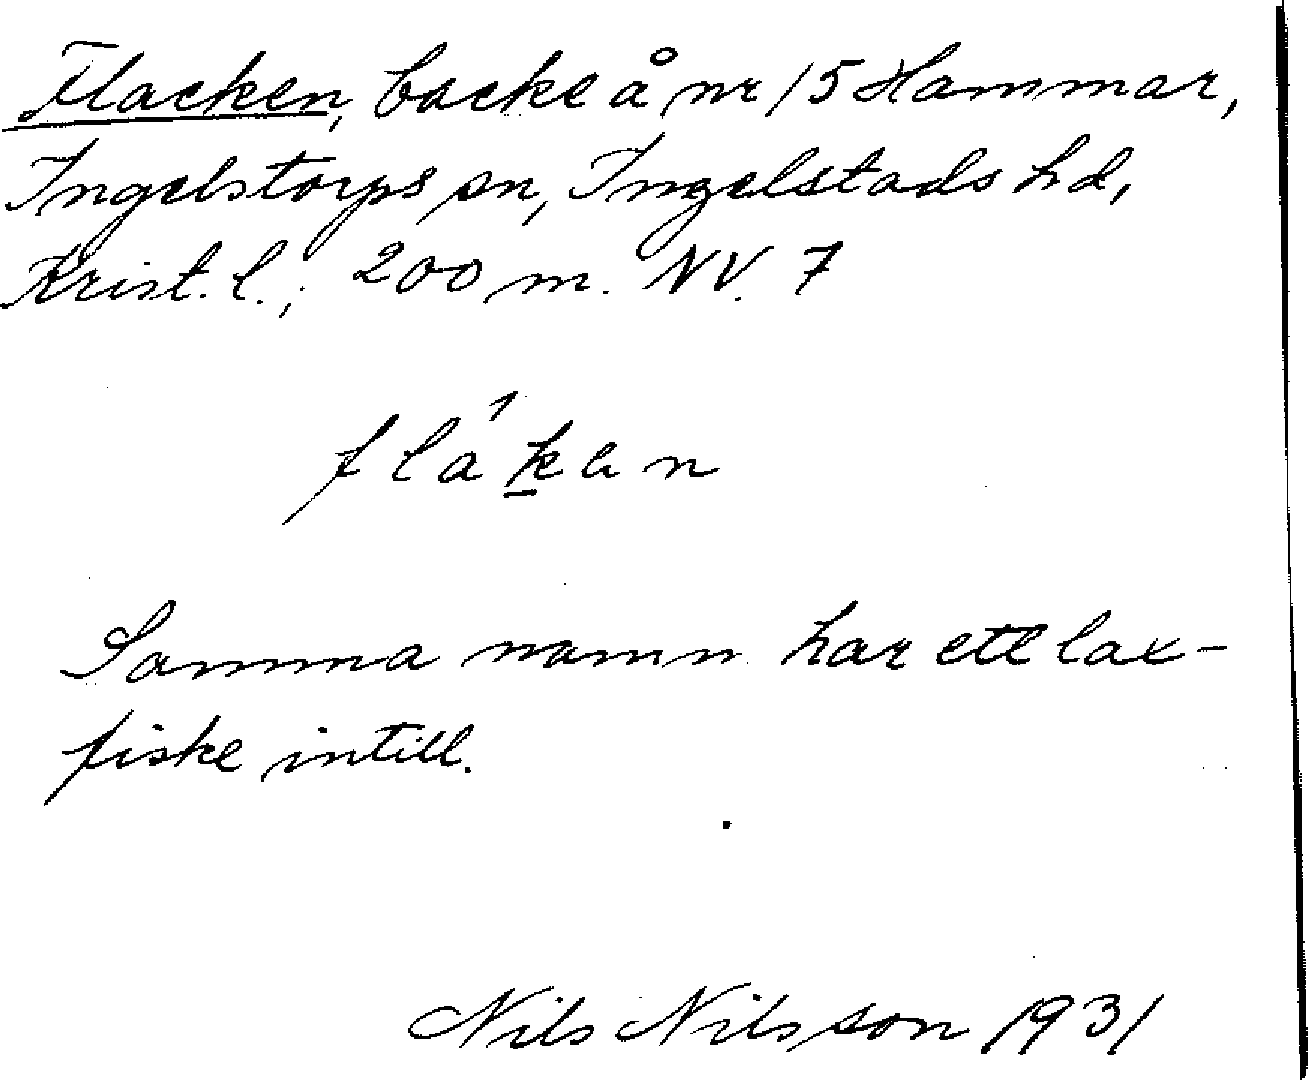 Flacken, backe å nr 15 Hammar,
Ingelstorps sn, Ingelstads hd,
Krist. l.; 200 m. NV. 7
fláken
Samma namn har ett lax-
fiske intill.
Nils Nilsson 1931